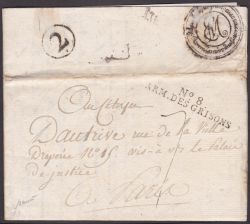 2
Nº 8
ARM. DES GRISONS
Au Citoyen
Dautrive rue de la Vieille
Draperie Nº 15 vis-à-vis le Palais
de justice
A Paris